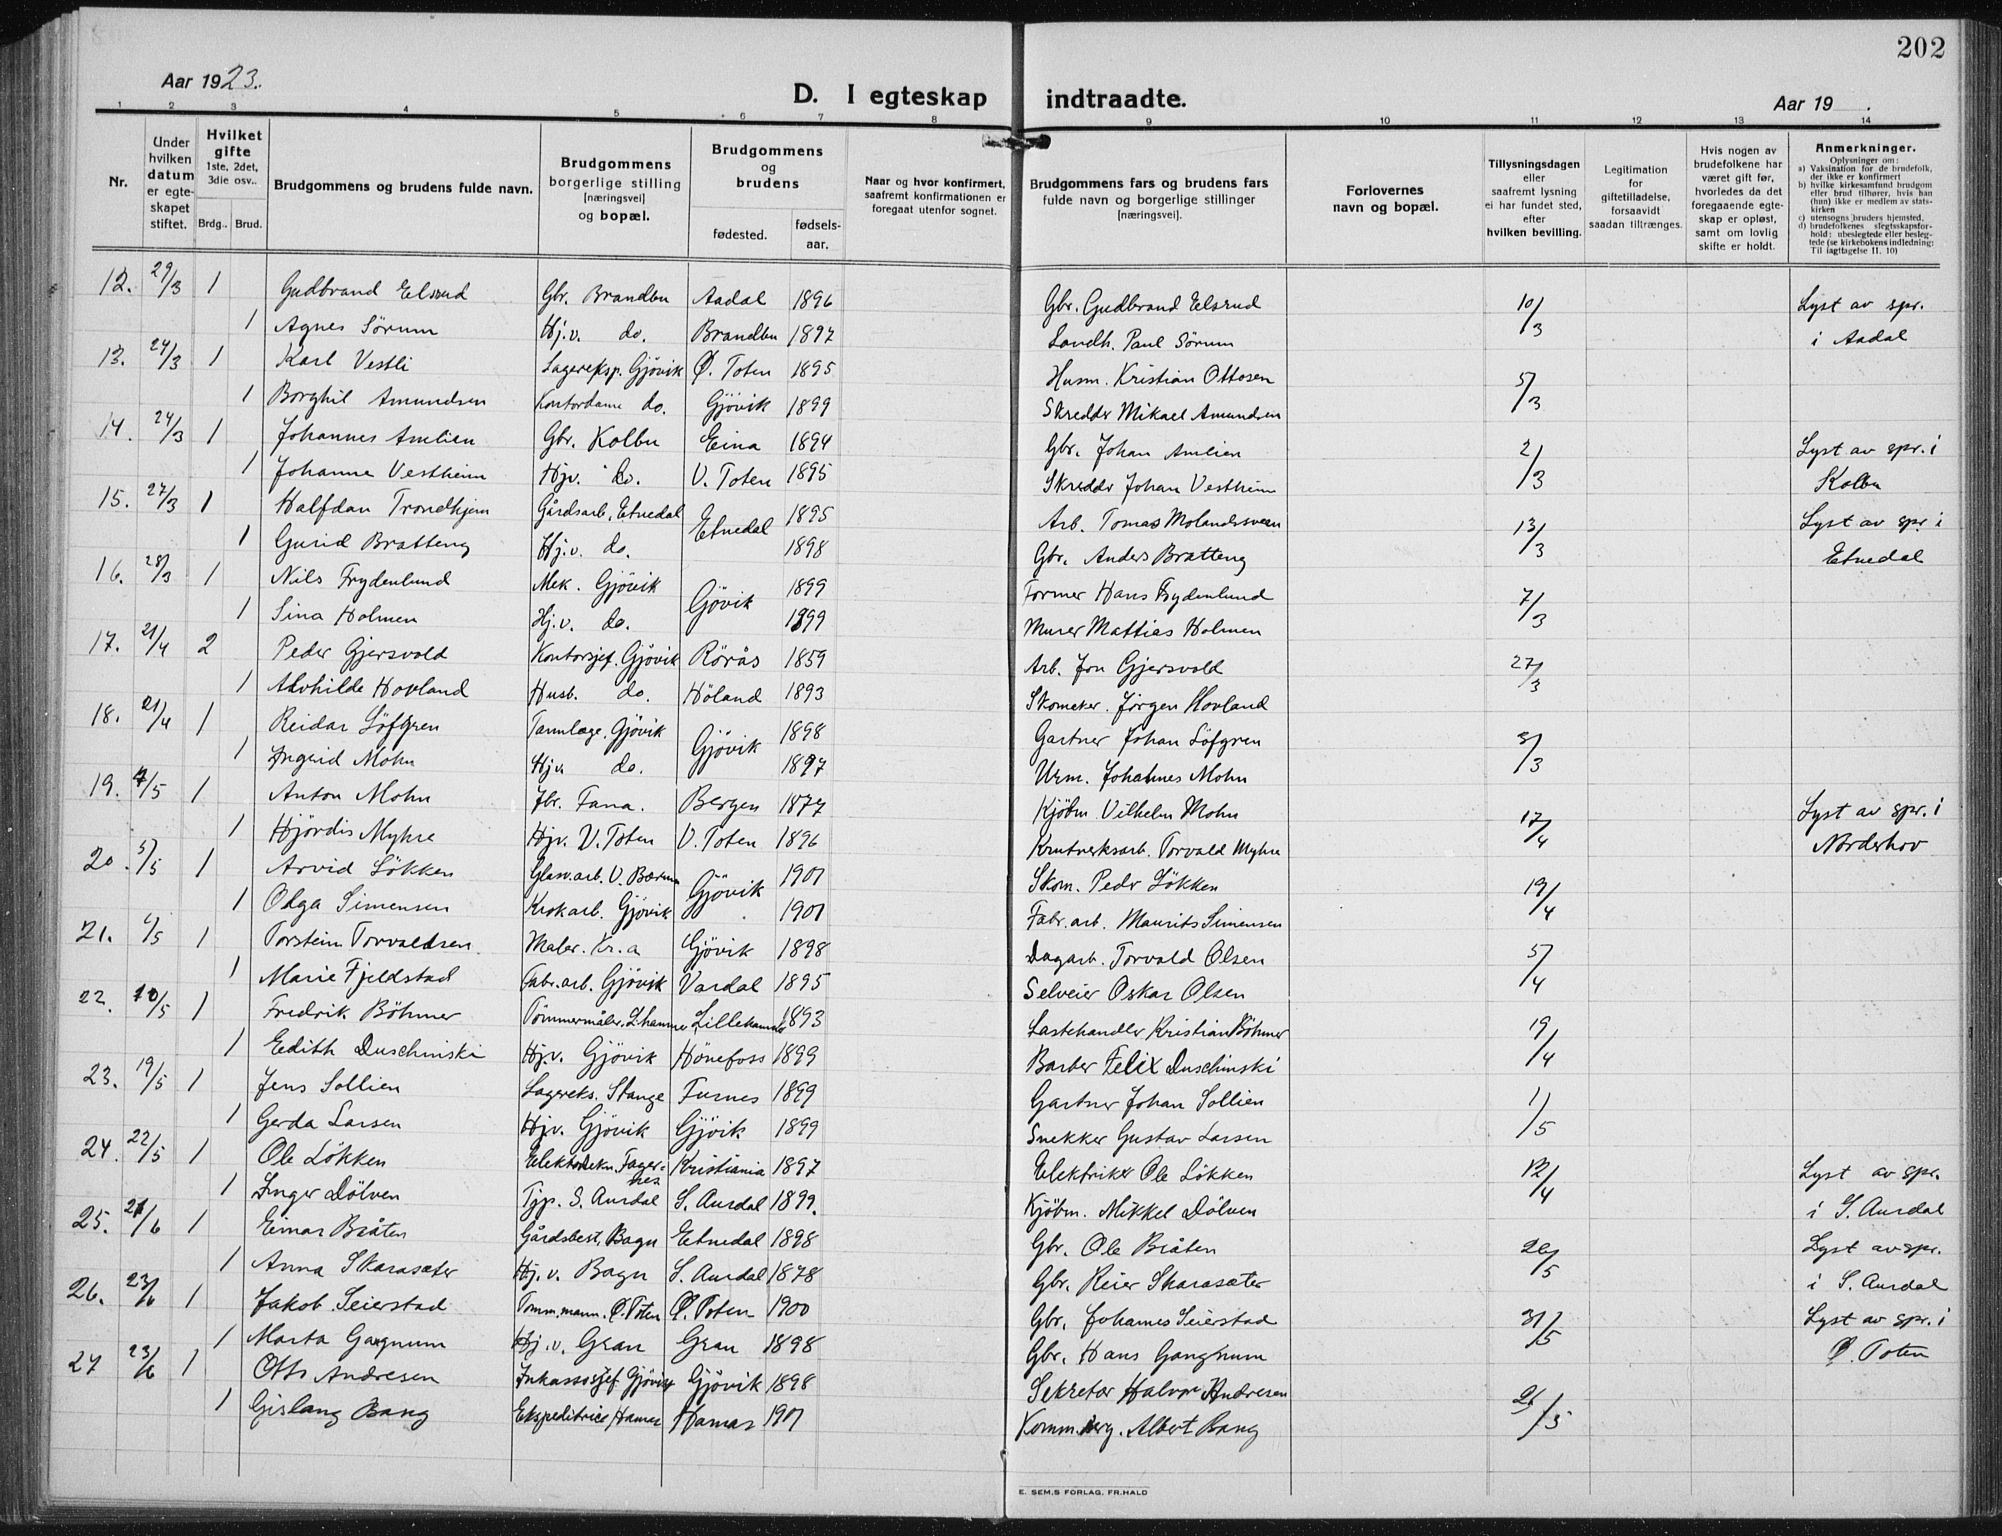 202
Aar 1923.
D. I egteskap indtraadte.
Aar 19 .
1 2 3 4 5 6 7 8 9 10 11 12 13 14
Nr.
Under hvilken datum er egteskapet stiftet.
Hvilket gifte 1ste, 2det, 3die osv..
Brdg.. Brud.
Brudgommens og brudens fulde navn.
Brudgommens borgerlige stilling [næringsvei] og bopæl.
Brudgommens og brudens
fødested.
fødselsaar.
Naar og hvor konfirmert, saafremt konfirmationen er foregaat utenfor sognet.
Brudgommens fars og brudens fars fulde navn og borgerlige stillinger [næringsvei].
Forlovernes navn og bopæl.
Tillysningsdagen eller saafremt lysning ei har fundet sted, efter hvilken bevilling.
Legitimation for giftetilladelse, forsaavidt saadan tiltrænges.
Hvis nogen av brudefolkene har været gift før, hvorledes da det foregaaende egteskap er opløst, samt om lovlig skifte er holdt.
Anmerkninger.
Oplysninger om:
a) Vaksination for de brudefolk, der ikke er konfirmert
b) hvilke kirkesamfund brudgom eller brud tilhører, hvis han (hun) ikke er medlem av statskirken
c) utensogns bruders hjemsted.
d) brudefolkenes slegtsskapsforhold: ubeslegtede eller beslegtede (se kirkebokens indledning: Til iagttagelse II. 10)
12. 29/3 1 Gudbrand Elsrud Gbr. Brandbu Aadal 1896 Gbr. Gudbrand Elsrud 10/3 Lyst av spr.
1 Agnes Sörum Hj.v. do. Brandbu 1897 Landh. Paul Sörum i Aadal
13. 24/3 1 Karl Vestli Lagereksp. Gjövik Ø. Toten 1895 Husm. Kristian Ottosen 5/3
1 Borghil Amundsen Kontordame do. Gjövik 1899 Skredder Mikael Amundsen
14. 24/3 1 Johannes Amlien Gbr. Kolbu Eina 1894 Gbr. Johan Amlien 2/3 Lyst av spr. i
1 Johanna Vestheim Hjv. do. V. Toten 1895 Skredder Johan Vestheim Kolbu
15. 27/3 1 Halfdan Trondhjem Gårdsarb. Etnedal Etnedal 1895 Arb. Tomas Molandsveen 13/3 Lyst av spr i
1 Gurid Bratteng Hj.v. do. 1898 Gbr. Anders Bratteng Etnedal
16. 28/3 1 Nils Frydenlund Mek. Gjövik Gjövik 1899 Former Hans Frydenlund 7/3
1 Sina Holmen Hj.v. do. 1899 Murer Mattias Holmen
17. 21/4 2 Peder Gjersvold Kontorsjef. Gjövik Rörås 1859 Arb. Jon Gjersvold 27/3
1 Alvhilde Hovland Husb. do. Höland 1893 Skomaker. Jörgen Hovland
18. 21/4 1 Reidar Löfgren Tannlæge. Gjövik Gjövik 1898 Gartner Johan Löfgren 3/3
1 Ingrid Mohn Hjv do. 1897 Urm. Johannes Mohn
19. 4/5 1 Anton Mohn Fbr. Fana. Bergen 1877 Kjöbm Vilhelm Mohn 17/4 Lyst av spr. i
1 Hjördis Myhre Hjv. V. Toten V. Toten 1896 Krutverksarb. Torvald Myhre Norderhov
20. 5/5 1 Arvid Lökken Glasv.arb. V. Bærum Gjövik 1901 Skom. Peder Lökken 19/4
1 Olga Simensen Krokarb. Gjövik 1901 Fabr. arb. Maurits Simensen
21. 6/5 1 Torstein Torvaldsen Maler. Kr.a Gjövik 1898 Dagarb. Torvald Olsen 5/4
1 Marie Fjeldstad Fabr.arb. Gjövik Vardal 1895 Selveier Oskar Olsen
22. 10/5 1 Fredrik Böhmer Tömmermåler. L.hammer Lillehammer 1893 Lastehandler Kristian Böhmer 19/4
1 Edith Duschinski Hj.v. Gjövik Hönefoss 1899 Barber Felix Duschinski
23. 19/5 1 Jens Sollien Lagereks. Stange Furnes 1899 Gartner Johan Sollien 1/5
1 Gerda Larsen Hjv. Gjövik Gjövik 1899 Snekker Gustav Larsen
24. 22/5 1 Ole Lökken Elektrotekn. Fager- nes Kristiania 1897 Elektriker Ole Lökken 12/4 Lyst av spr.
1 Inger Dölven Typ. S. Aurdal S. Aurdal 1899. Kjöbm. Mikkel Dölven i S. Aurdal
25. 21/6 1 Einar Bråten Gårdsbest. Bagn Etnedal 1898 Gbr. Ole Bråten 26/5 Lyst av spr.
1 Anna Skarasæter Hj. v. Bagn S. Aurdal 1878 Gbr. Reier Skarasæter i S. Aurdal
26. 23/6 1 Jakob Seierstad Tomm.mann. Ø. Toten Ø. Toten 1900 Gbr. Johannes Seierstad 31/5 Lyst av spr. i
1 Marta Gagnum Hj. v. Gran Gran 1898 Gbr. Hans Gangnum Ø. Toten
27 23/6 1 Otto Andresen Inkassosjef Gjövik Gjövik 1898 Sekretær Halvor Andresen 26/5
1 Gislaug Bang Ekspeditrice Hamar Hamar 1901 Komm.ing. Albert Bang
E. SEM,S FORLAG, FR.HALD